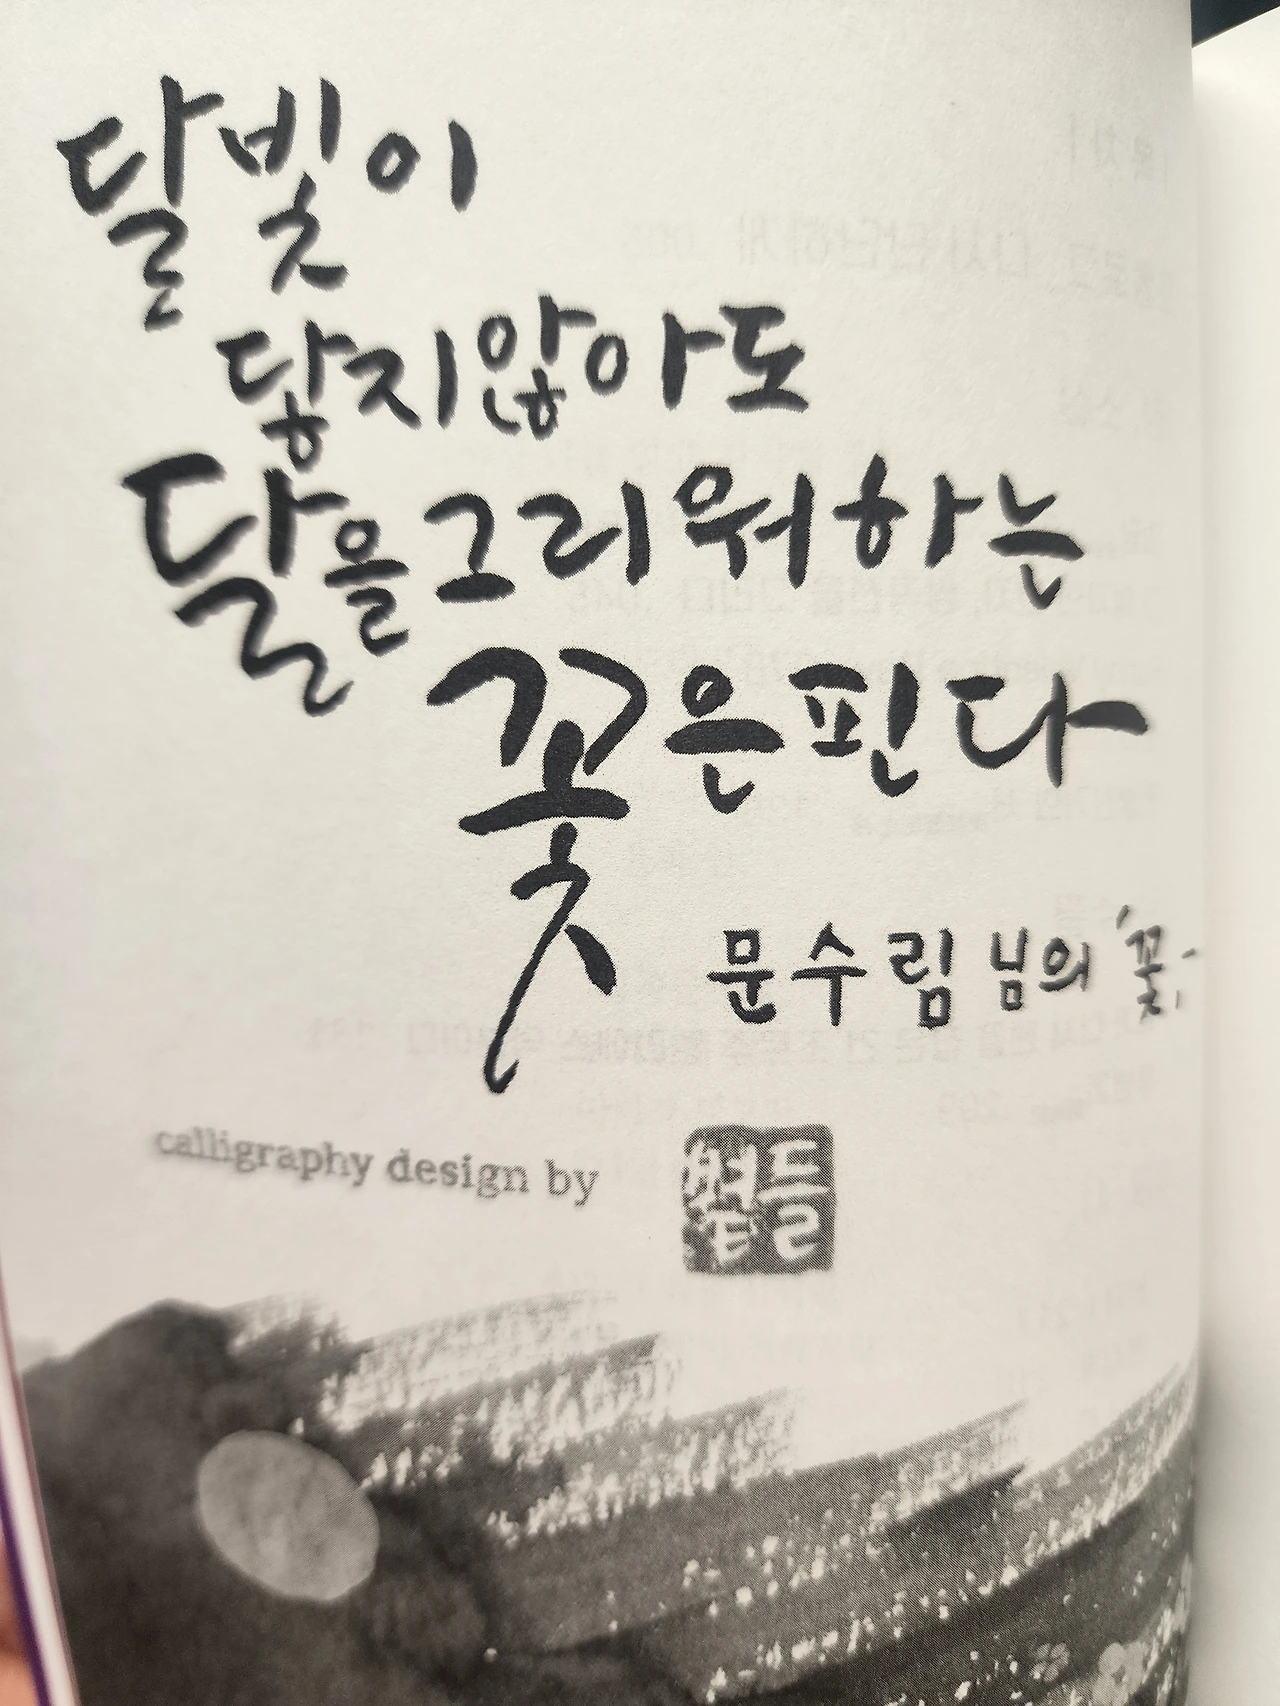 달빛이
닿지않아도
달을그리워하는
꽃은핀다
문수림 님의 '꽃'
calligraphy design by